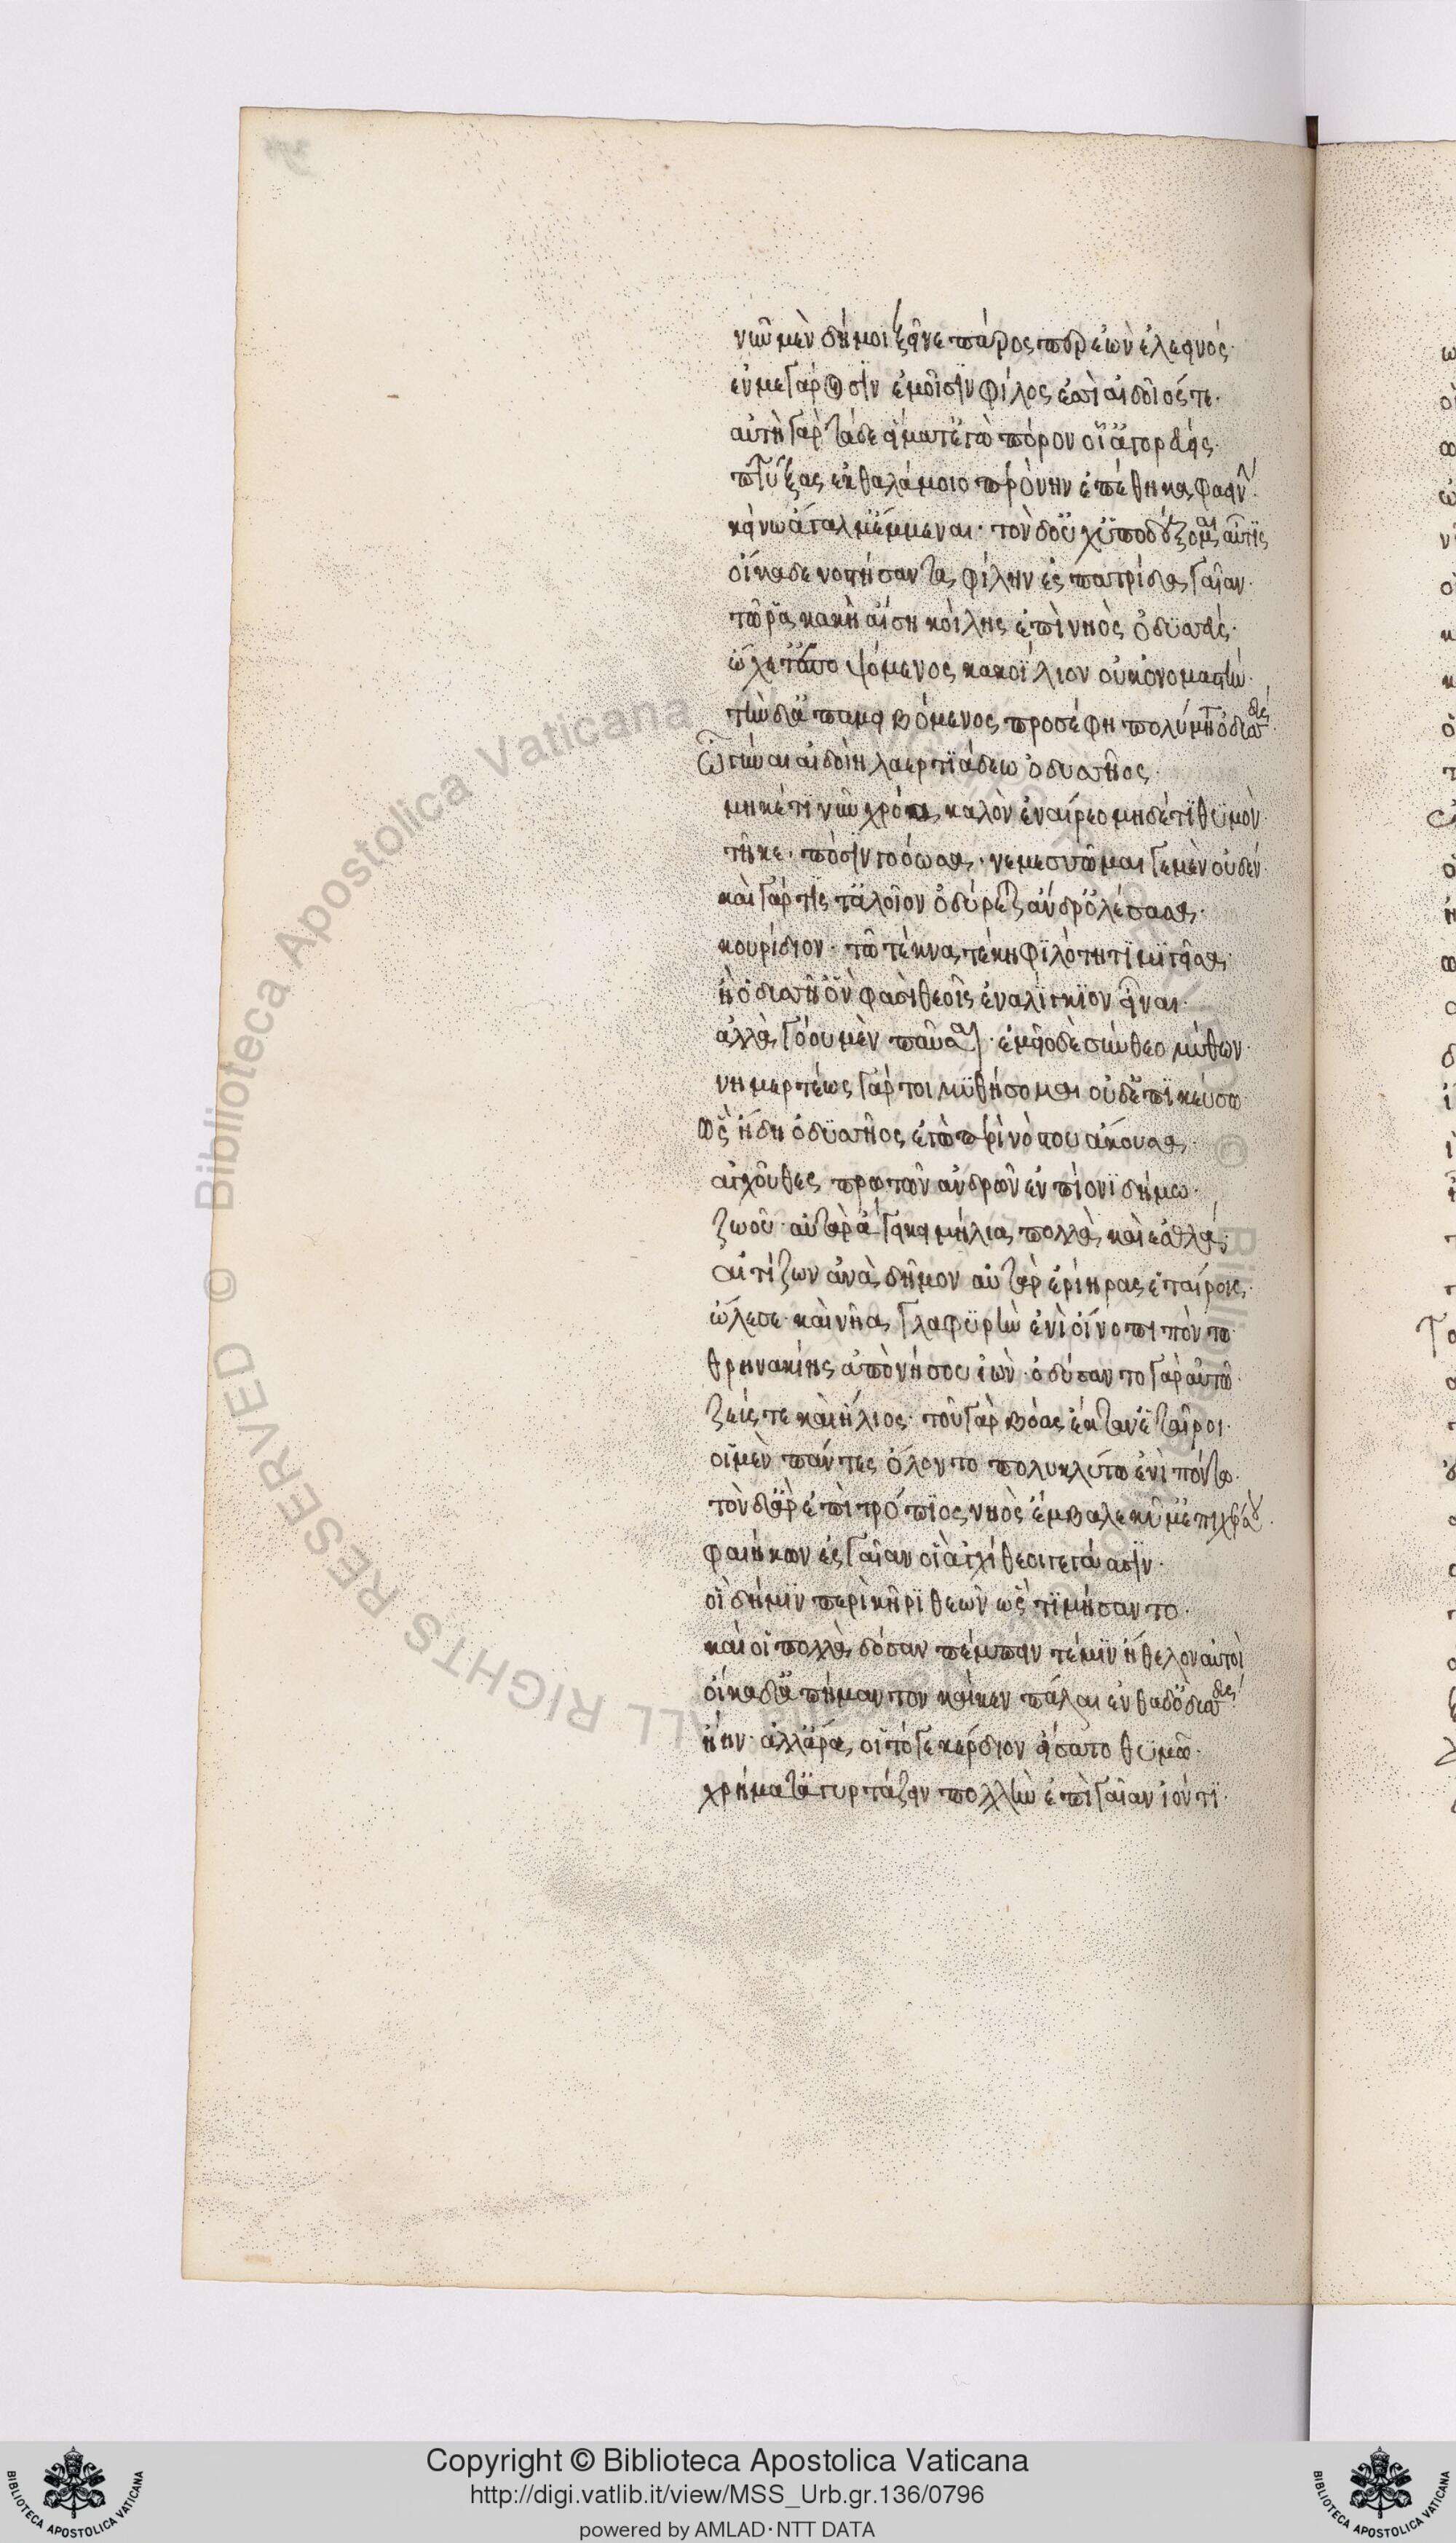 νῦν μὲν δή μοι ξεῖνε πάρος περ ἐὼν ἐλεεινός·
ἐν μεγάροισϊν ἐμοῖσϊν φίλος ἔσῃ αἰδοῖός τε·
αὐτὴ γὰρ τάδε εἵματ' ἐγὼ πόρον οἷ' ἀγορεύεις·
πτύξασ' ἐκ θαλάμοιο περόνην ἐπέθηκα φαεινήν·
κείνω ἄγαλμ' ἔμμεναι· τὸν δ' οὐχ ὑποδέξομαι αὖτις
οἴκαδε νοστήσαντα φίλην ἐς πατρίδα γαῖαν·
τῶ ῥα κακῆ αἴση κοίλης ἐπὶ νηὸς ὀδυσσεύς·
ὤχετ' ἐποψόμενος κακοΐλιον οὐκ ὀνομαστήν·
τὴν δ' ἀπαμειβόμενος προσέφη πολύμητις ὀδυσσεύς·
ὦ γύναι αἰδοίη λαερτϊάδεω ὀδυσσῆος·
μηκέτι νῦν χρόα καλὸν ἐναίρεο μηδέ τϊ θυμὸν·
τῆκε· πόσϊν γοόωσα· νεμεσσῶμαι γε μὲν οὐδέν·
καὶ γάρ τίς τ' ἀλλοῖον ὀδύρετ' ἄνδρ' ὀλέσασα·
κουρίδιον· τῶ τέκνα τέκη φϊλότητϊ μϊγεῖσα·
ἢ ὀδυσσῆ' ὃν φασὶ θεοῖς ἐναλίγκϊον εἶναι·
ἀλλὰ γόου μὲν παῦσαι· ἐμεῖο δὲ σύνθεο μύθων·
νημερτέως γάρ τοι μϋθήσομαι οὐδ' ἐπϊκεύσω·
ὡς ἤδη ὀδϋσσῆος ἐγὼ περὶ νόστου ἄκουσα·
ἀγχοῦ θεσπρωτῶν ἀνδρῶν ἐν πίονϊ δήμω·
ζωοῦ· αὐτὰρ ἄγει κειμήλια πολλὰ καὶ ἐσθλά·
αἰτίζων ἀνὰ δῆμον αὐτὰρ ἐρίηρας ἑταίρους·
ὤλεσε· καὶ νῆα γλαφϋρὴν ἐνὶ οἴνοπι πόντω·
θρηνακίης ἀπὸ νήσου ἰὼν· ὀδύσαντο γὰρ αὐτῶ·
ζεύς τε καὶ ἠέλιος· τοῦ γὰρ βόας ἔκταν ἑταῖροι·
οἱ μὲν πάντες ὄλοντο πολυκλύστω ἐνὶ πόντω·
τὸν δ' ἄρ' ἐπὶ τρόπϊος νηὸς ἔμβαλε κῦμ' ἐπὶ χέρσου·
φαιήκων ἐς γαῖαν οἳ ἀγχίθεοι γεγάασϊν·
οἳ δή μϊν περὶ κῆρϊ θεὸν ὣς τϊμήσαντο·
καί οἱ πολλὰ δόσαν πέμπειν τέ μϊν ἤθελον αὐτοὶ
οἴκαδ' ἀπήμαντον καί κεν πάλαι ἐνθάδ' ὀδυσσεύς
ἤην· ἀλλ' ἄρα οἱ τόγε κέρδιον εἴσατο θϋμῶ·
χρήματ' ἀγυρτάζειν πολλὴν ἐπὶ γαῖαν ἰόντϊ·
Copyright © Biblioteca Apostolica Vaticana
http://digi.vatlib.it/view/MSS_Urb.gr.136/0796
powered by AMLAD·NTT DATA